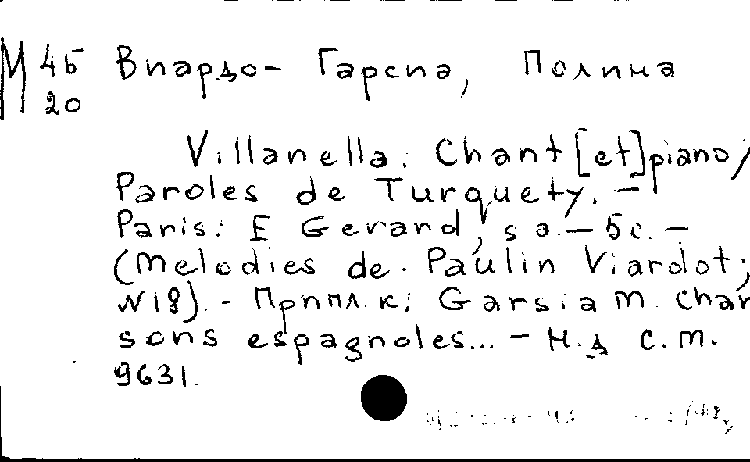 М 45 Виардо- Гарсиа, Полина
20
Villanella: Chant [et] piano/
Paroles de Turquety. -
Paris: E Gerand, s a. - 5c. -
(Melodies de. Paulin Viardot;
N18). - Припл. к: Garsia M. chan
sons espagnoles... - Н. д С.М.
9631.